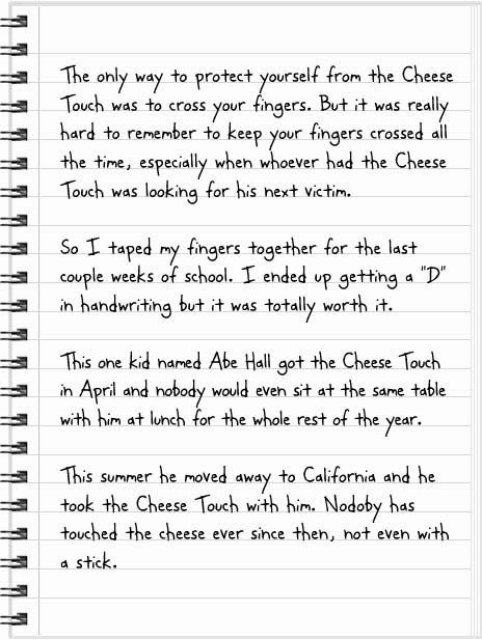 The only way to protect yourself from the Cheese
Touch was to cross your fingers. But it was really
hard to remember to keep your fingers crossed all
the time, especially when whoever had the Cheese
Touch was looking for his next victim.
So I taped my fingers together for the last
couple weeks of school. I ended up getting a "D"
in handwriting but it was totally worth it.
This one kid named Abe Hall got the Cheese Touch
in April and nobody would even sit at the same table
with him at lunch for the whole rest of the year.
This summer he moved away to California and he
took the Cheese Touch with him. Nodoby has
touched the cheese ever since then, not even with
a stick.